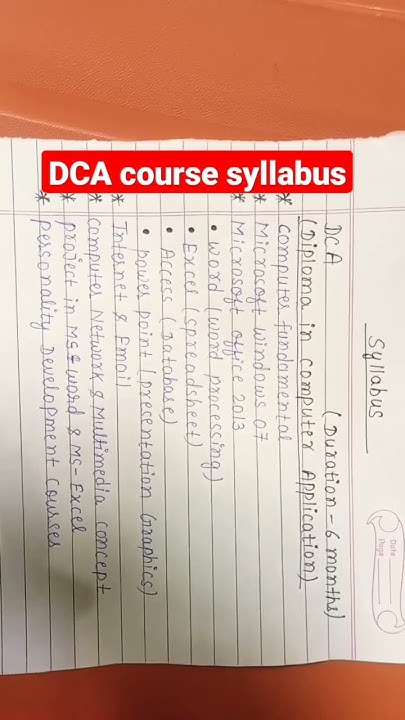 DCA course syllabus
Date
Page
Syllabus
DCA (Duration - 6 months)
(Diploma in computer Application)
* computer fundamental
* Microsoft windows 07
* Microsoft office 2013
• word (word processing)
• Excel (spreadsheet)
• Access (Database)
• power point (presentation Graphics)
* Internet & Email
* computer Network & Multimedia concept
* project in MS-word & MS-Excel
* personality Development courses